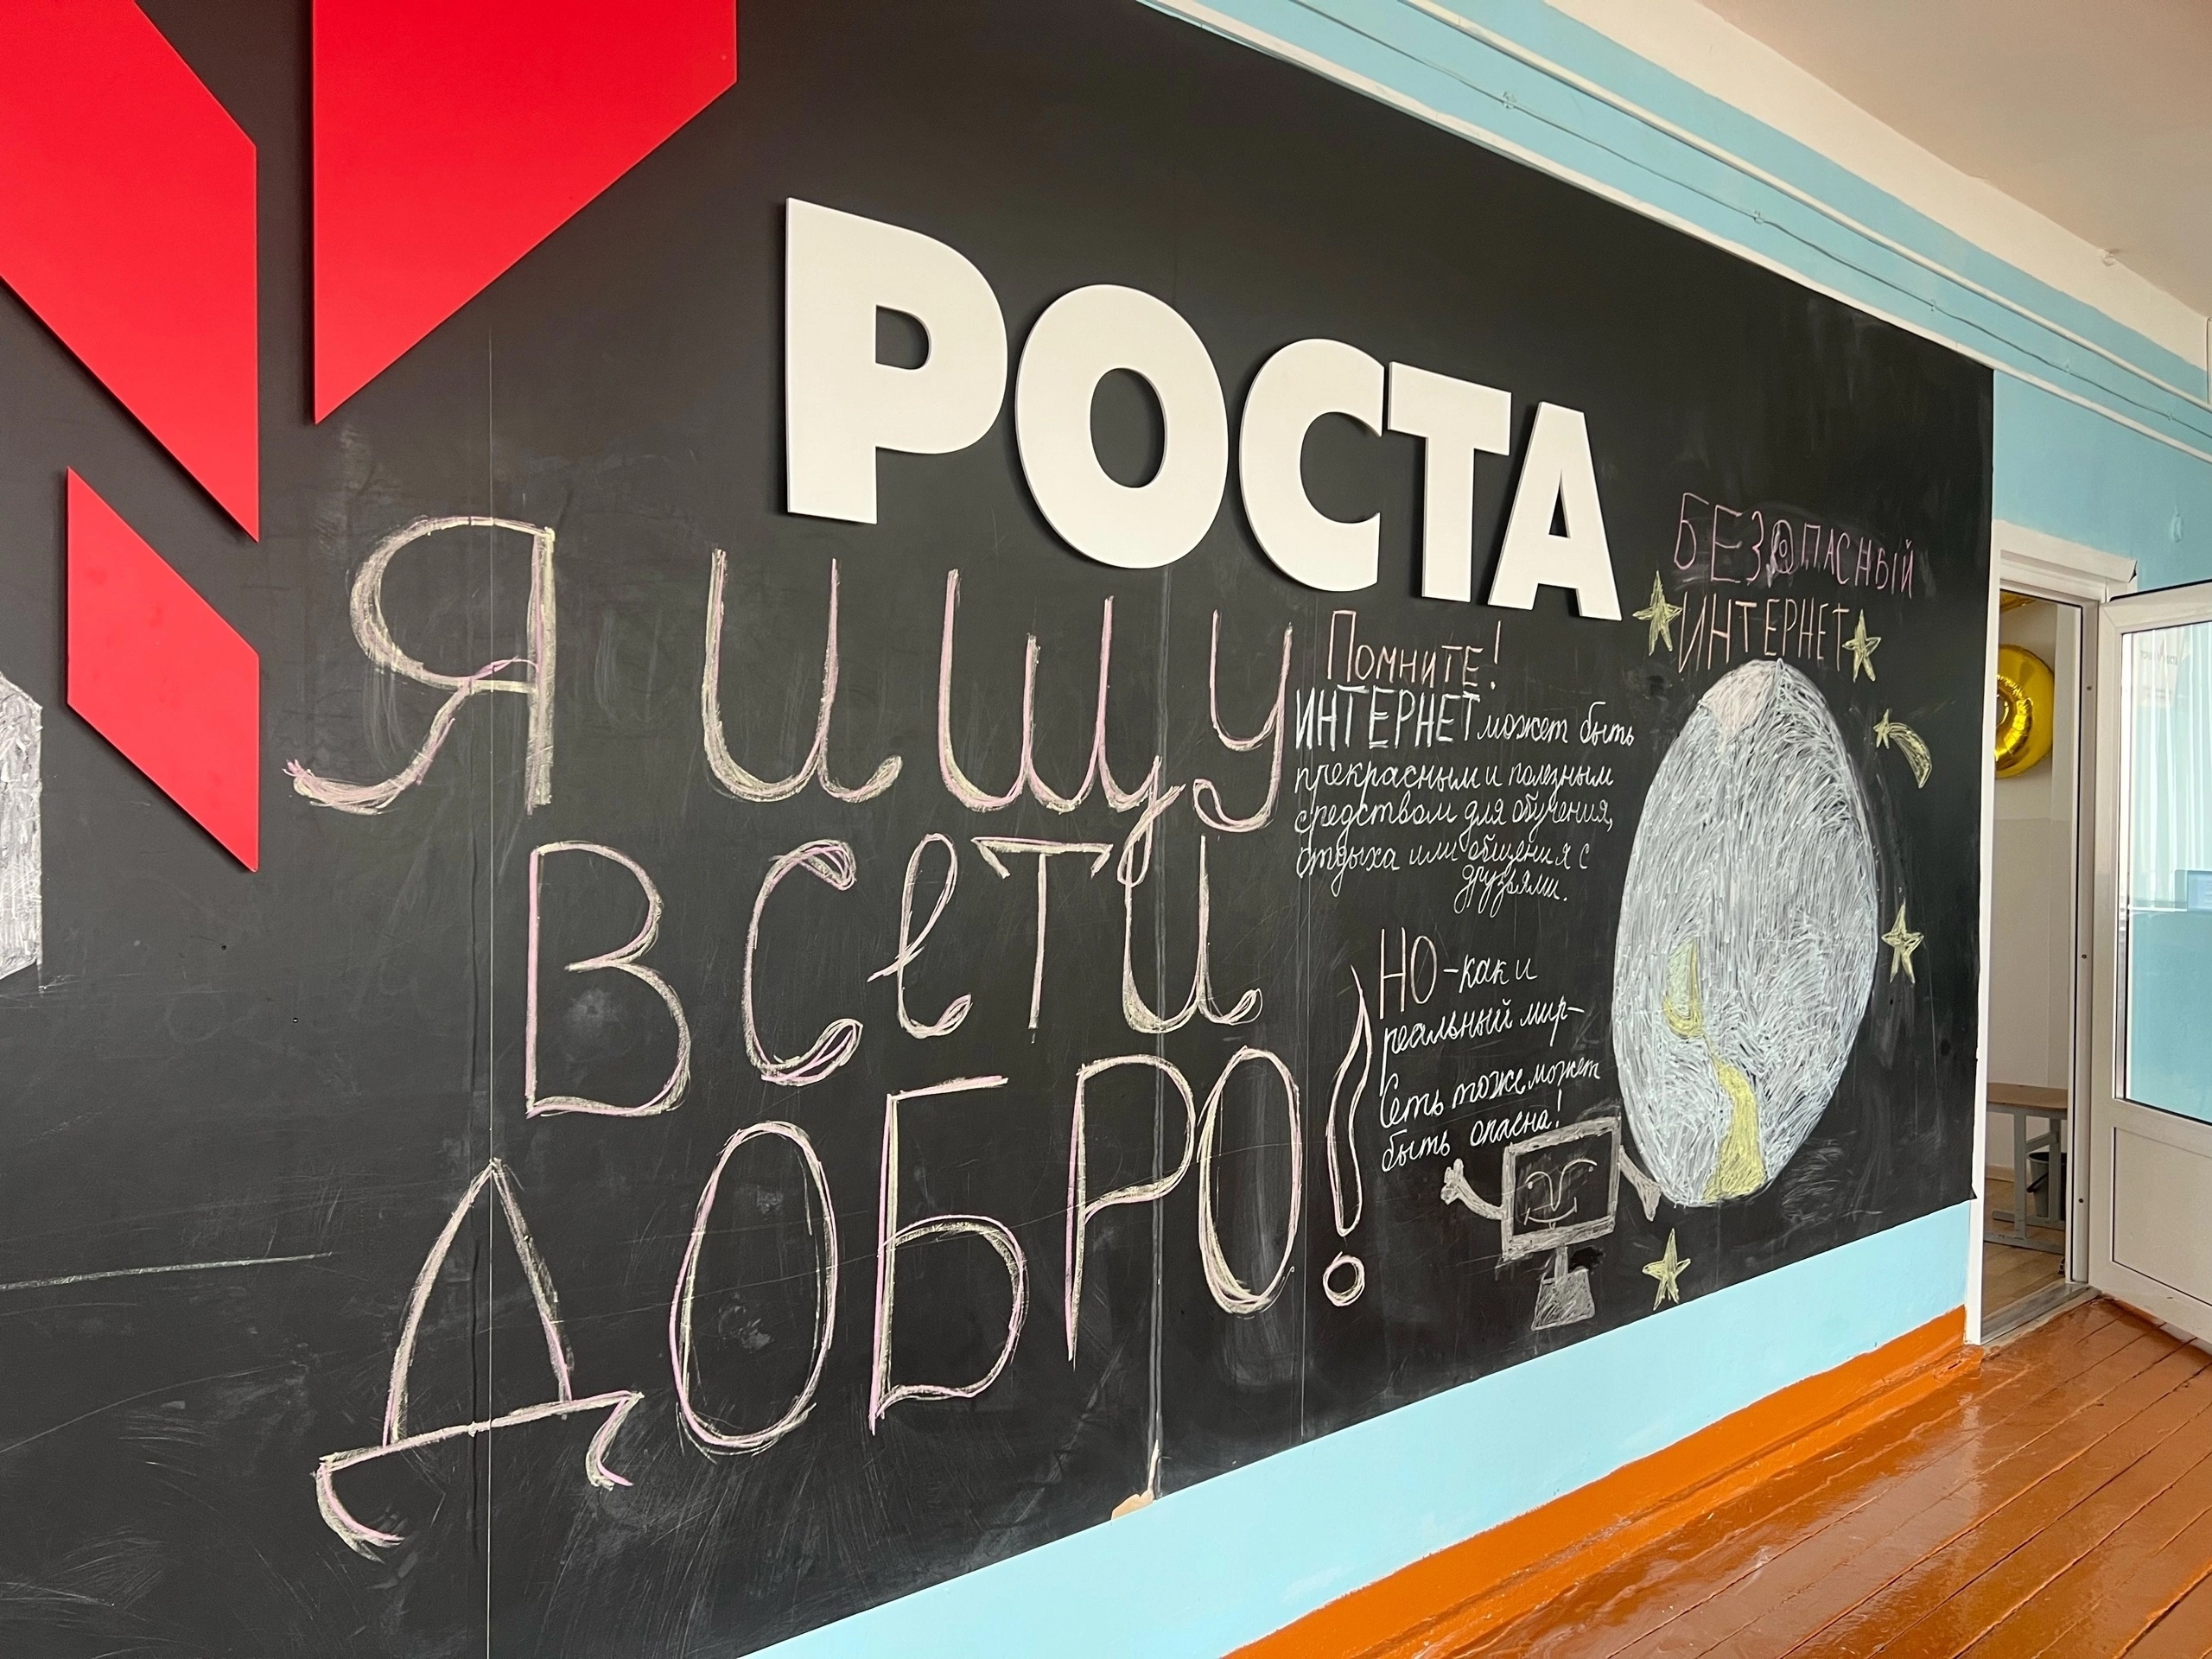 РОСТА
Я ищу
В сети
ДОБРО!
Помните!
ИНТЕРНЕТ может быть
прекрасным и полезным
средством для обучения,
отдыха или общения с
друзьями.
НО - как и
реальный мир -
Сеть тоже может
быть опасна!
БЕЗОПАСНЫЙ
ИНТЕРНЕТ